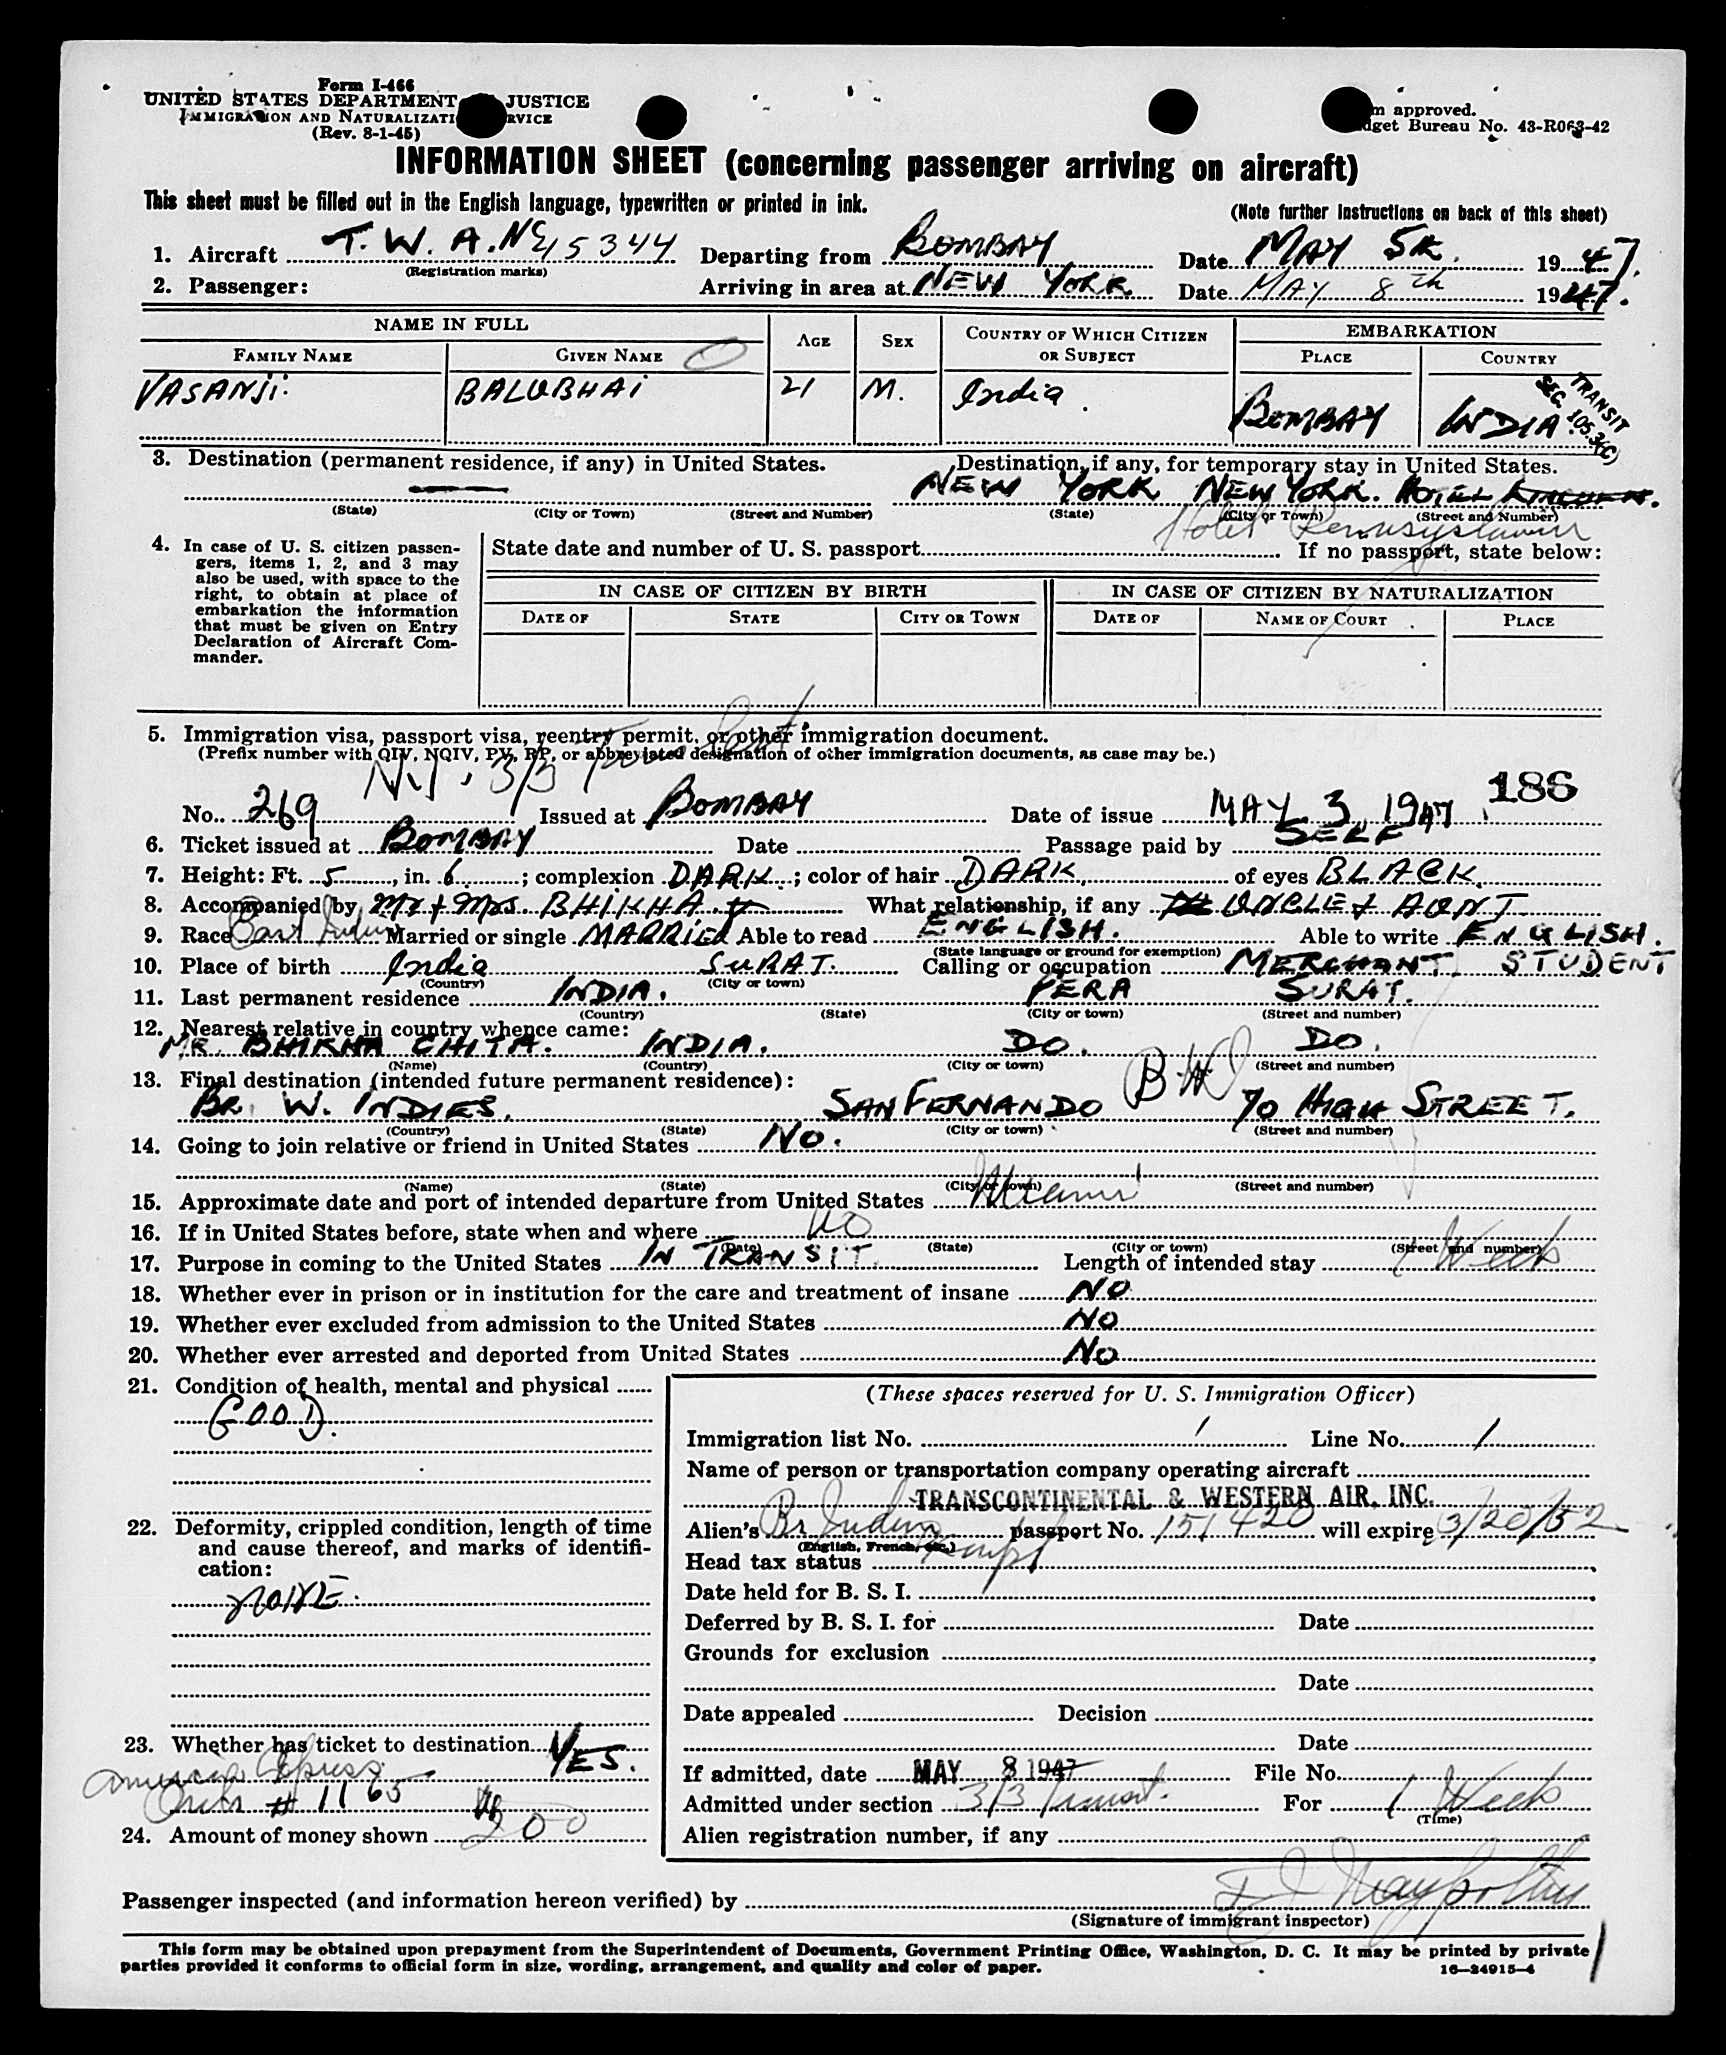 Form I-466
UNITED STATES DEPARTMENT JUSTICE
IMMIGRATION AND NATURALIZATI RVICE
(Rev. 8-1-45)
m approved.
dget Bureau No. 43-R063-42
INFORMATION SHEET (concerning passenger arriving on aircraft)
This sheet must be filled out in the English language, typewritten or printed in ink.
(Note further instructions on back of this sheet)
1. Aircraft T. W. A. 45344 Departing from BOMBAY Date MAY 5th. 1947.
(Registration marks)
2. Passenger: Arriving in area at NEW YORK Date MAY 8th 1947.
NAME IN FULL AGE SEX COUNTRY OF WHICH CITIZEN OR SUBJECT EMBARKATION
FAMILY NAME GIVEN NAME PLACE COUNTRY
VASANJI. BALUBHAI 21 M. India. BOMBAY INDIA.
TRANSIT
SEC. 105.3(C)
3. Destination (permanent residence, if any) in United States. Destination, if any, for temporary stay in United States.
— NEW YORK NEW YORK. HOTEL
(State) (City or Town) (Street and Number) (State) (City or Town) (Street and Number)
Hotel Pennsylvania
4. In case of U. S. citizen passengers, items 1, 2, and 3 may also be used, with space to the right, to obtain at place of embarkation the information that must be given on Entry Declaration of Aircraft Commander.
State date and number of U. S. passport If no passport, state below:
IN CASE OF CITIZEN BY BIRTH IN CASE OF CITIZEN BY NATURALIZATION
DATE OF STATE CITY OR TOWN DATE OF NAME OF COURT PLACE
5. Immigration visa, passport visa, reentry permit, or other immigration document.
(Prefix number with QIV, NQIV, PV, RP, or abbreviated designation of other immigration documents, as case may be.)
3/3 Transit
186
No. 269 Issued at BOMBAY Date of issue MAY 3 1947.
6. Ticket issued at BOMBAY Date Passage paid by SELF
7. Height: Ft. 5, in. 6; complexion DARK.; color of hair DARK. of eyes BLACK.
8. Accompanied by Mr & Mrs. BHIKHA. What relationship, if any UNCLE & AUNT.
9. Race East Indian Married or single MARRIED Able to read ENGLISH. Able to write ENGLISH.
(State language or ground for exemption)
10. Place of birth India SURAT. Calling or occupation MERCHANT. STUDENT
(Country) (City or town)
11. Last permanent residence INDIA. PERA SURAT.
(Country) (State) (City or town) (Street and number)
12. Nearest relative in country whence came:
MR. BHIKHA CHITA. INDIA. DO. DO.
(Name) (Country) (City or town) (Street and number)
13. Final destination (intended future permanent residence): BWI
BR. W. INDIES. SAN FERNANDO 70 HIGH STREET.
(Country) (State) (City or town) (Street and number)
14. Going to join relative or friend in United States NO.
(Name) (State) (City or town) (Street and number)
15. Approximate date and port of intended departure from United States Miami
16. If in United States before, state when and where no
(Date) (State) (City or town) (Street and number)
17. Purpose in coming to the United States IN TRANSIT. Length of intended stay 1 Week
18. Whether ever in prison or in institution for the care and treatment of insane NO
19. Whether ever excluded from admission to the United States NO
20. Whether ever arrested and deported from United States NO
21. Condition of health, mental and physical
GOOD.
22. Deformity, crippled condition, length of time and cause thereof, and marks of identification:
NONE.
23. Whether has ticket to destination YES.
American Express
Order # 1165
24. Amount of money shown 200
(These spaces reserved for U. S. Immigration Officer)
Immigration list No. 1 Line No. 1
Name of person or transportation company operating aircraft
TRANSCONTINENTAL & WESTERN AIR, INC.
Alien's Br Indian passport No. 151420 will expire 3/20/52
(English, French, etc.)
Head tax status Exempt
Date held for B. S. I.
Deferred by B. S. I. for Date
Grounds for exclusion
Date
Date appealed Decision
Date
If admitted, date MAY 8 1947 File No.
Admitted under section 3/3 Transit. For 1 Week
(Time)
Alien registration number, if any
Passenger inspected (and information hereon verified) by
(Signature of immigrant inspector)
This form may be obtained upon prepayment from the Superintendent of Documents, Government Printing Office, Washington, D. C. It may be printed by private
parties provided it conforms to official form in size, wording, arrangement, and quality and color of paper.
16—24915-4